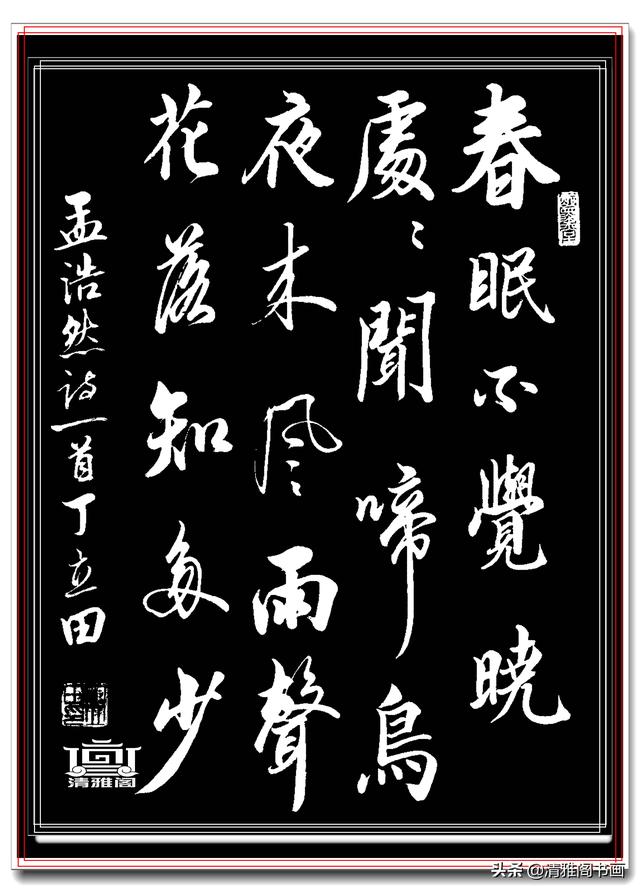 春眠不覺晓
處〻聞啼鳥
夜来风雨聲
花落知多少
孟浩然诗一首丁立田
清雅阁
头条 @清雅阁书画